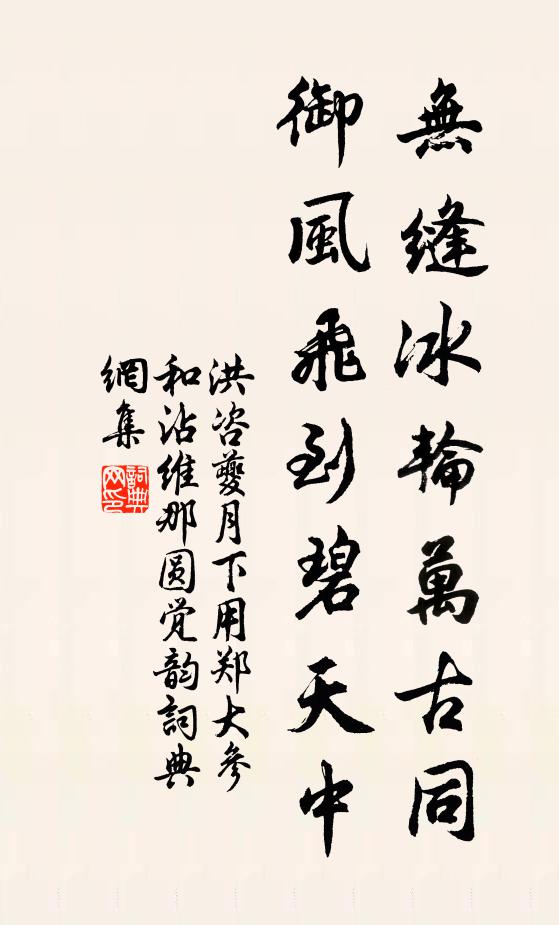 無縫冰輪萬古同
御風飛到碧天中
洪咨夔月下用郑大参
和沾维那圆觉韵詞典
網集
詞典
网印